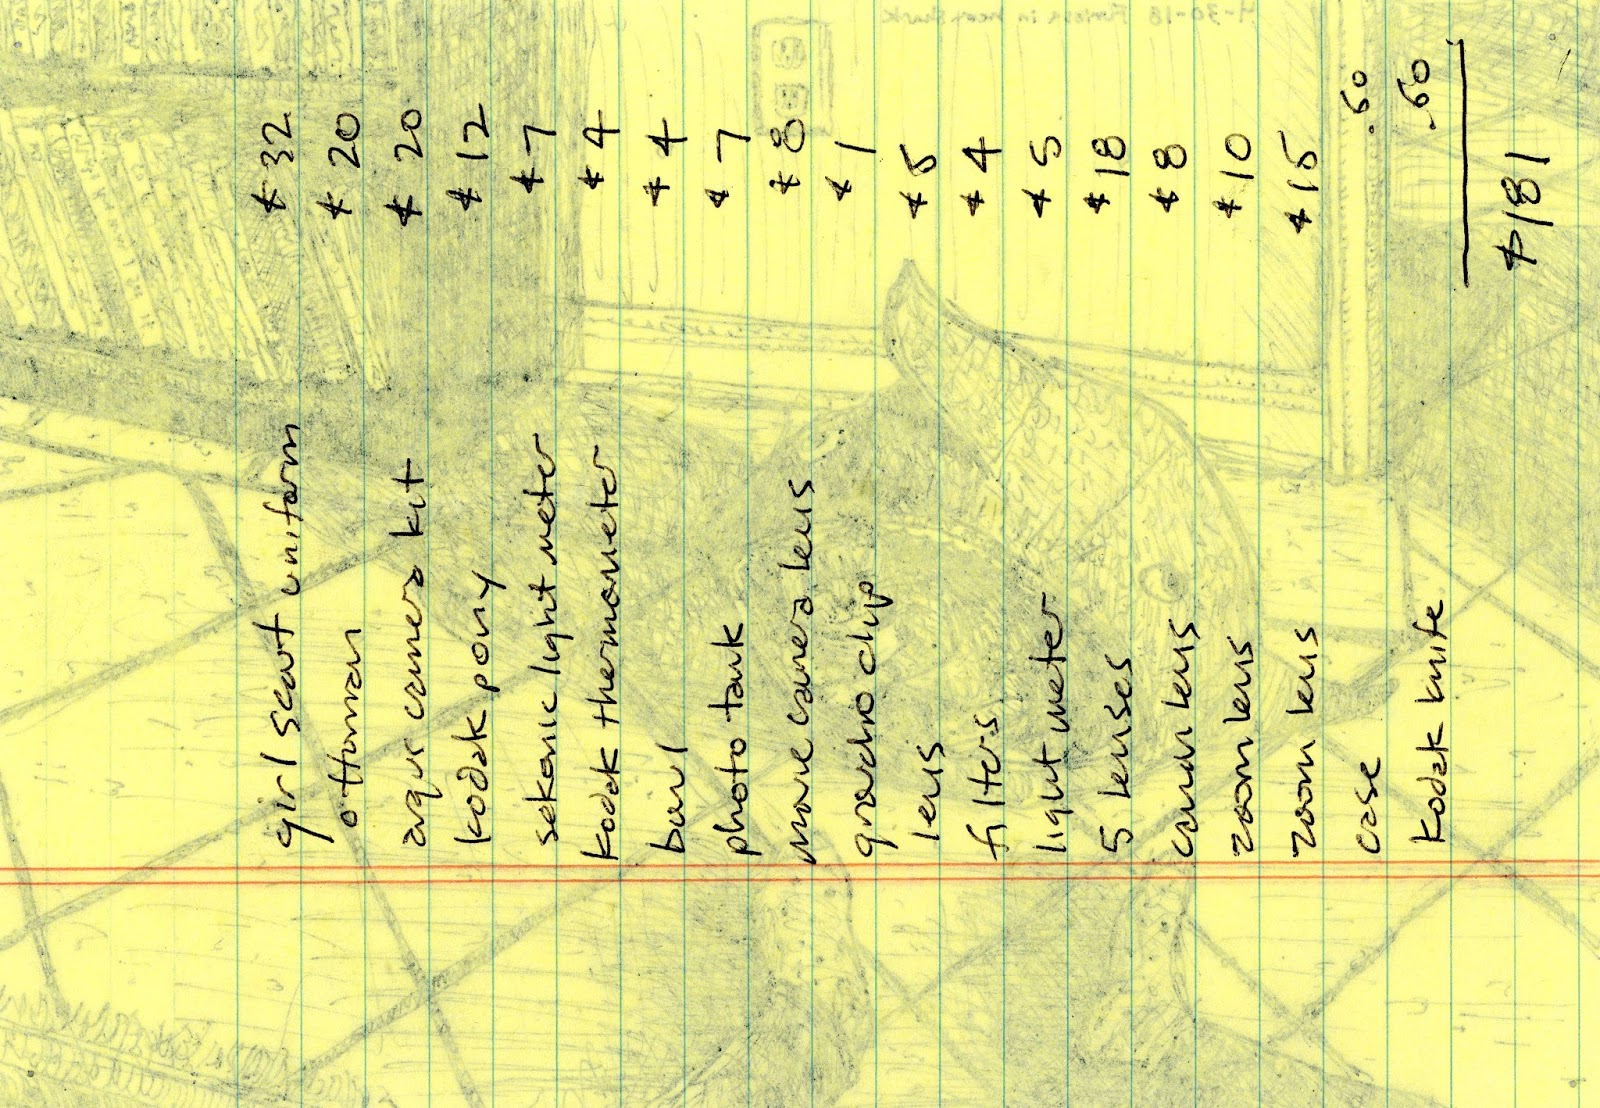 girl scout uniform $32
ottoman $20
argus camera kit $20
kodak pony $12
sekonic light meter $7
kodak thermometer $4
bowl $4
photo tank $7
more camera lens $8
clip $1
lens $5
filters $4
light meter $5
5 lenses $18
canon lens $8
zoom lens $10
zoom lens $15
case .50
kodak knife .50
$181
4-30-18 in